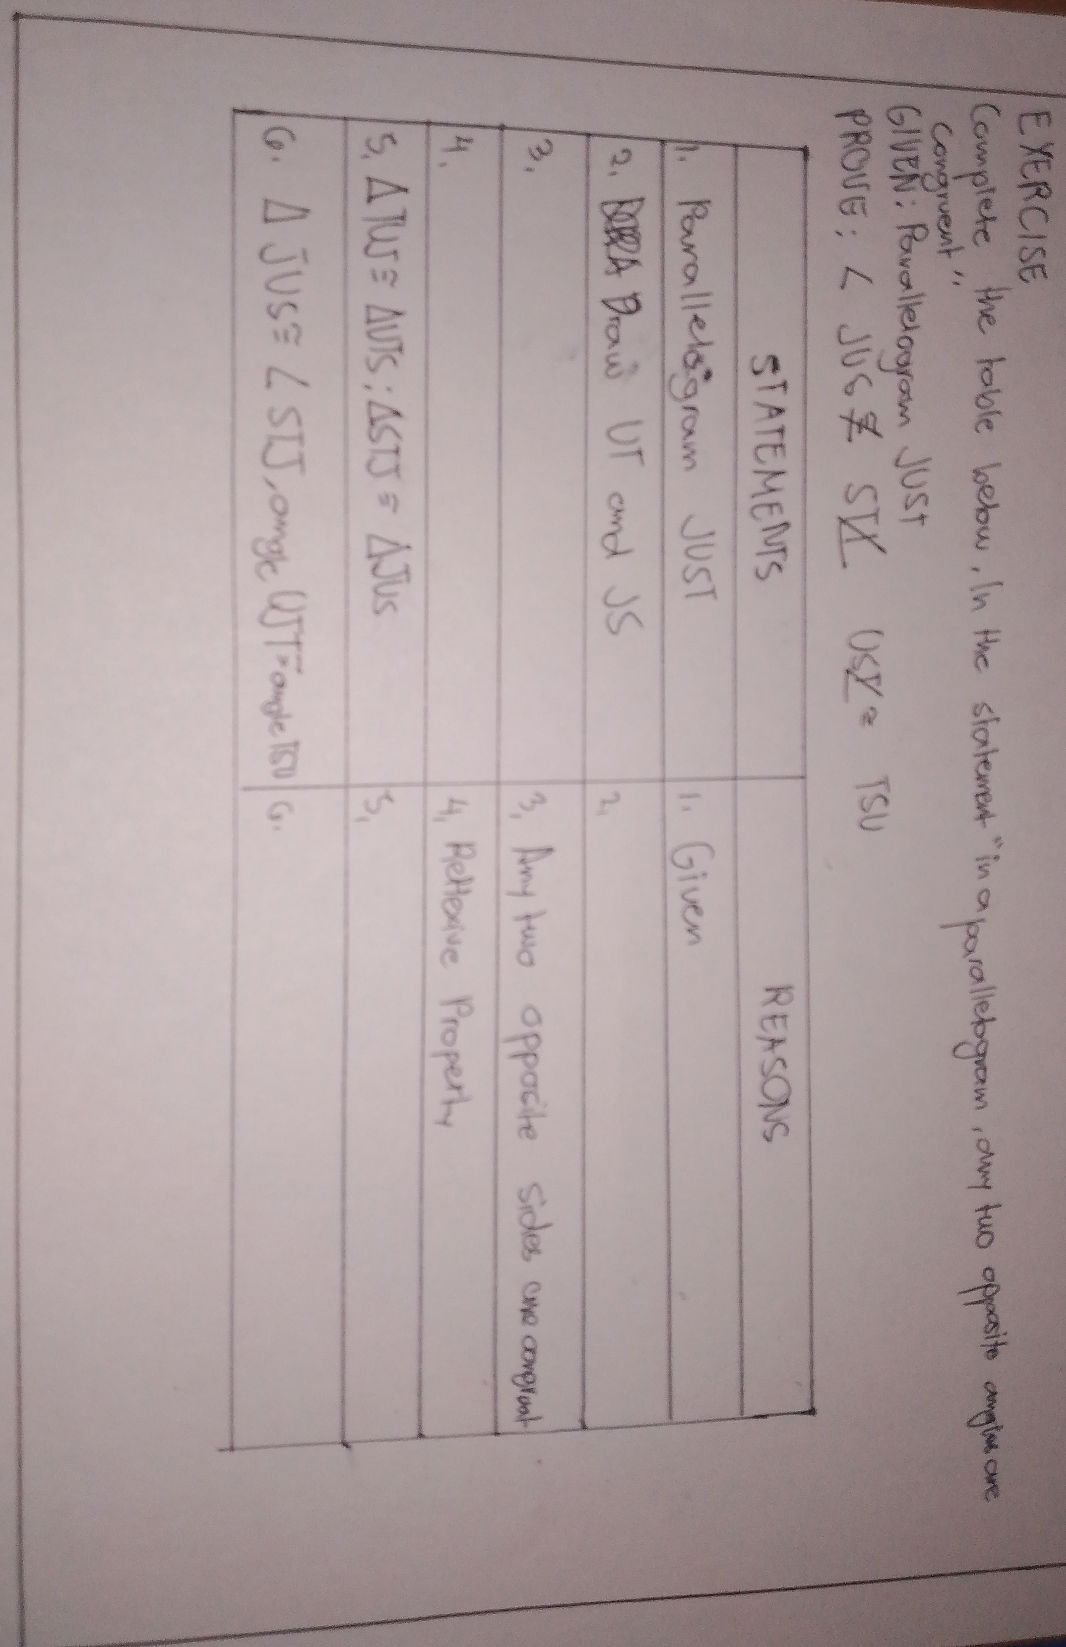 EXERCISE
Complete the table below, In the statement "in a parallelogram, any two opposite angles are
congruent",
GIVEN: Parallelogram JUST
PROVE: < JUS ≇ STJ UJT ≅ TSU
STATEMENTS REASONS
1. Parallelogram JUST 1. Given
2. Draw UT and JS 2,
3. 3, Any two opposite sides are congruent
4. 4, Reflexive Property
5. Δ TUJ ≡ ΔUTS; ΔSTJ ≡ ΔJUS 5,
6. Δ JUS ≡ ∠ STJ, angle UJT = angle TSU 6.